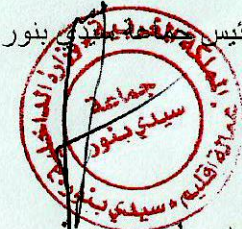 رئيس جماعة سيدي بنور
المملكة المغربية
وزارة الداخلية
عمالة إقليم سيدي بنور
جماعة
سيدي بنور